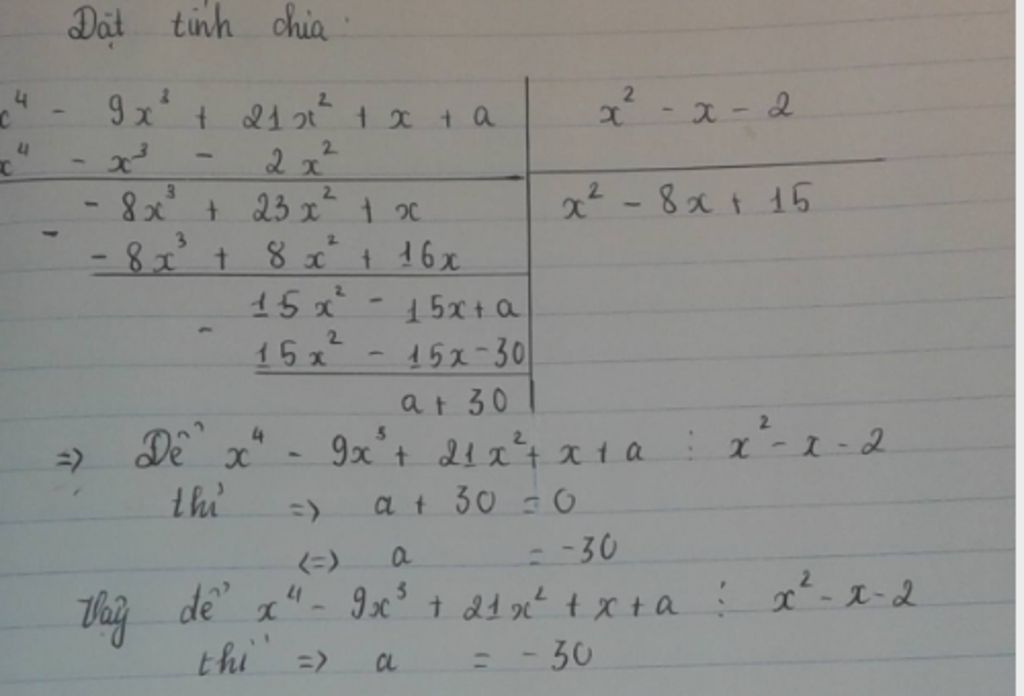 Đặt tính chia
x⁴ - 9x³ + 21x² + x + a | x² - x - 2
x⁴ - x³ - 2x² | x² - 8x + 15
- 8x³ + 23x² + x
-
- 8x³ + 8x² + 16x
15x² - 15x + a
-
15x² - 15x - 30
a + 30
=> Để x⁴ - 9x³ + 21x² + x + a ⋮ x² - x - 2
thì => a + 30 = 0
<=> a = -30
Vậy để x⁴ - 9x³ + 21x² + x + a ⋮ x² - x - 2
thì => a = - 30